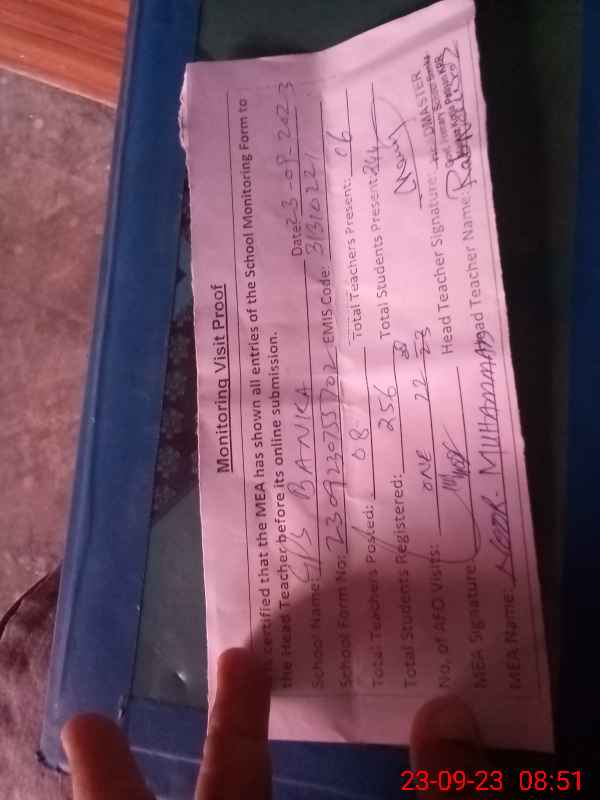 Monitoring Visit Proof
is certified that the MEA has shown all entries of the School Monitoring Form to
the Head Teacher before its online submission.
School Name: GPS BANKA Date: 23-09-2023
School Form No: EMIS Code:
Total Teachers Posted: 08 Total Teachers Present: 06
Total Students Registered: 256 Total Students Present: 244
No. of AFO Visits: ONE 22 23 Head Teacher Signature: HEADMASTER
MEA Signature Head Teacher Name:
MEA Name: NOOR MUHAMMAD
23-09-23 08:51